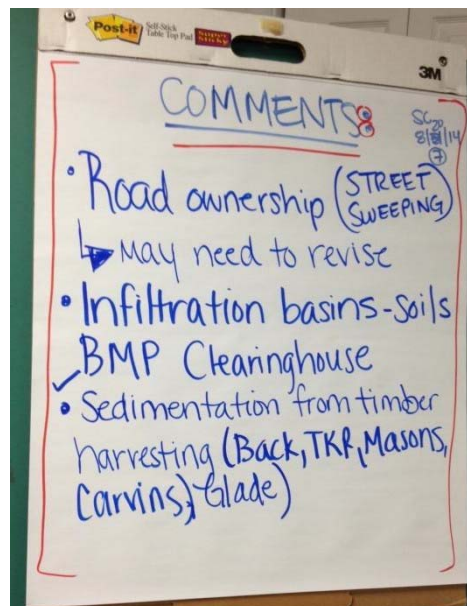 Post-it Self-Stick Table Top Pad Super Sticky
3M
COMMENTS:
8/14
7
• Road ownership (STREET SWEEPING)
↳ may need to revise
• Infiltration basins-soils
BMP Clearinghouse
✓
• Sedimentation from timber
harvesting (Back, TKR, Masons,
Carvins, Glade)